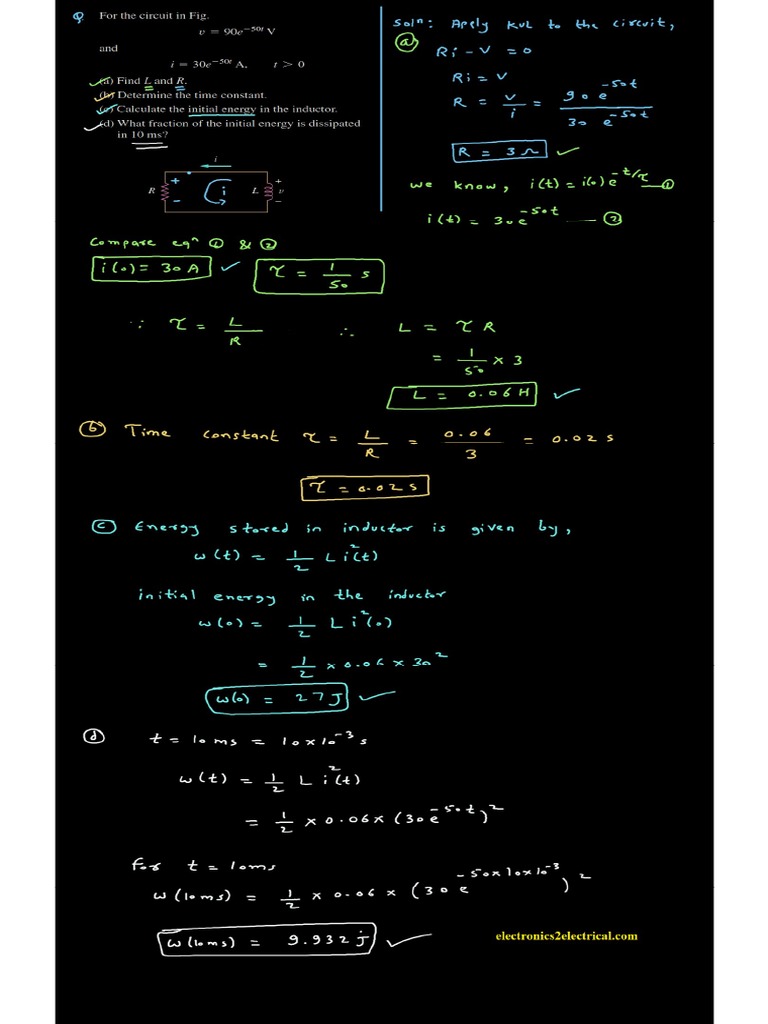 Q For the circuit in Fig.
v = 90e^{-50t} V
and
i = 30e^{-50t} A, t > 0
(a) Find L and R.
(b) Determine the time constant.
(c) Calculate the initial energy in the inductor.
(d) What fraction of the initial energy is dissipated
in 10 ms?
i
R + - i L + v -
Solⁿ: Apply KVL to the circuit,
(a)
Ri - V = 0
Ri = V
R = V/i = 90e^{-50t}/30e^{-50t}
R = 3Ω ✓
we know, i(t) = i(0)e^{-t/τ} — ①
i(t) = 30e^{-50t} — ②
Compare eqⁿ ① & ②
i(0) = 30A ✓ τ = 1/50 s
∵ τ = L/R ∴ L = τR
= 1/50 × 3
L = 0.06H ✓
(b) Time constant τ = L/R = 0.06/3 = 0.02s
τ = 0.02s
(c) Energy stored in inductor is given by,
w(t) = 1/2 Li²(t)
initial energy in the inductor
w(0) = 1/2 Li²(0)
= 1/2 × 0.06 × 30²
w(0) = 27J ✓
(d) t = 10ms = 10×10^{-3} s
w(t) = 1/2 Li²(t)
= 1/2 × 0.06 × (30e^{-50t})²
For t = 10ms
w(10ms) = 1/2 × 0.06 × (30e^{-50×10×10^{-3}})²
w(10ms) = 9.932j ✓
electronics2electrical.com